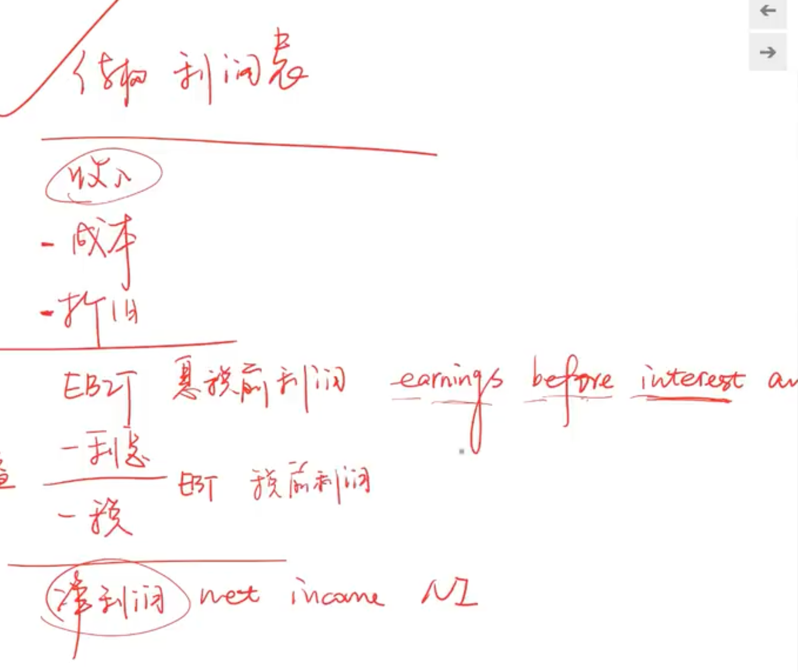 结构 利润表
收入
- 成本
- 折旧
EBIT 息税前利润 earnings before interest an
- 利息
EBT 税前利润
- 税
净利润 net income NI